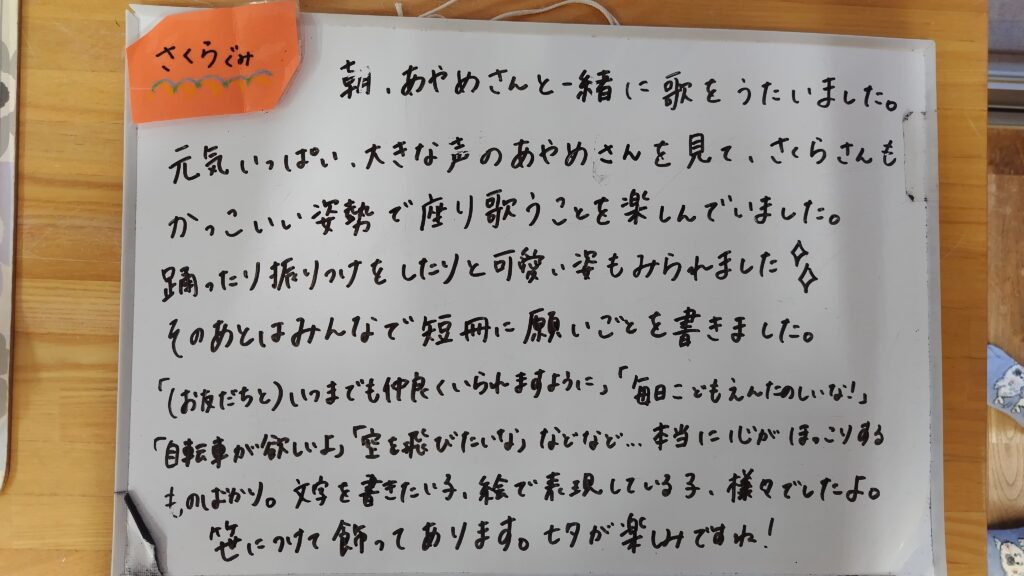 さくらぐみ
朝、あやめさんと一緒に歌をうたいました。
元気いっぱい、大きな声のあやめさんを見て、さくらさんも
かっこいい姿勢で座り歌うことを楽しんでいました。
踊ったり振りつけをしたりと可愛い姿もみられました
そのあとはみんなで短冊に願いごとを書きました。
「(お友だちと)いつまでも仲良くいられますように」「毎日こどもえんたのしいな!」
「自転車が欲しいよ」「空を飛びたいな」などなど…本当に心がほっこりする
ものばかり。文字を書きたい子、絵で表現している子、様々でしたよ。
笹につけて飾ってあります。七夕が楽しみですね!